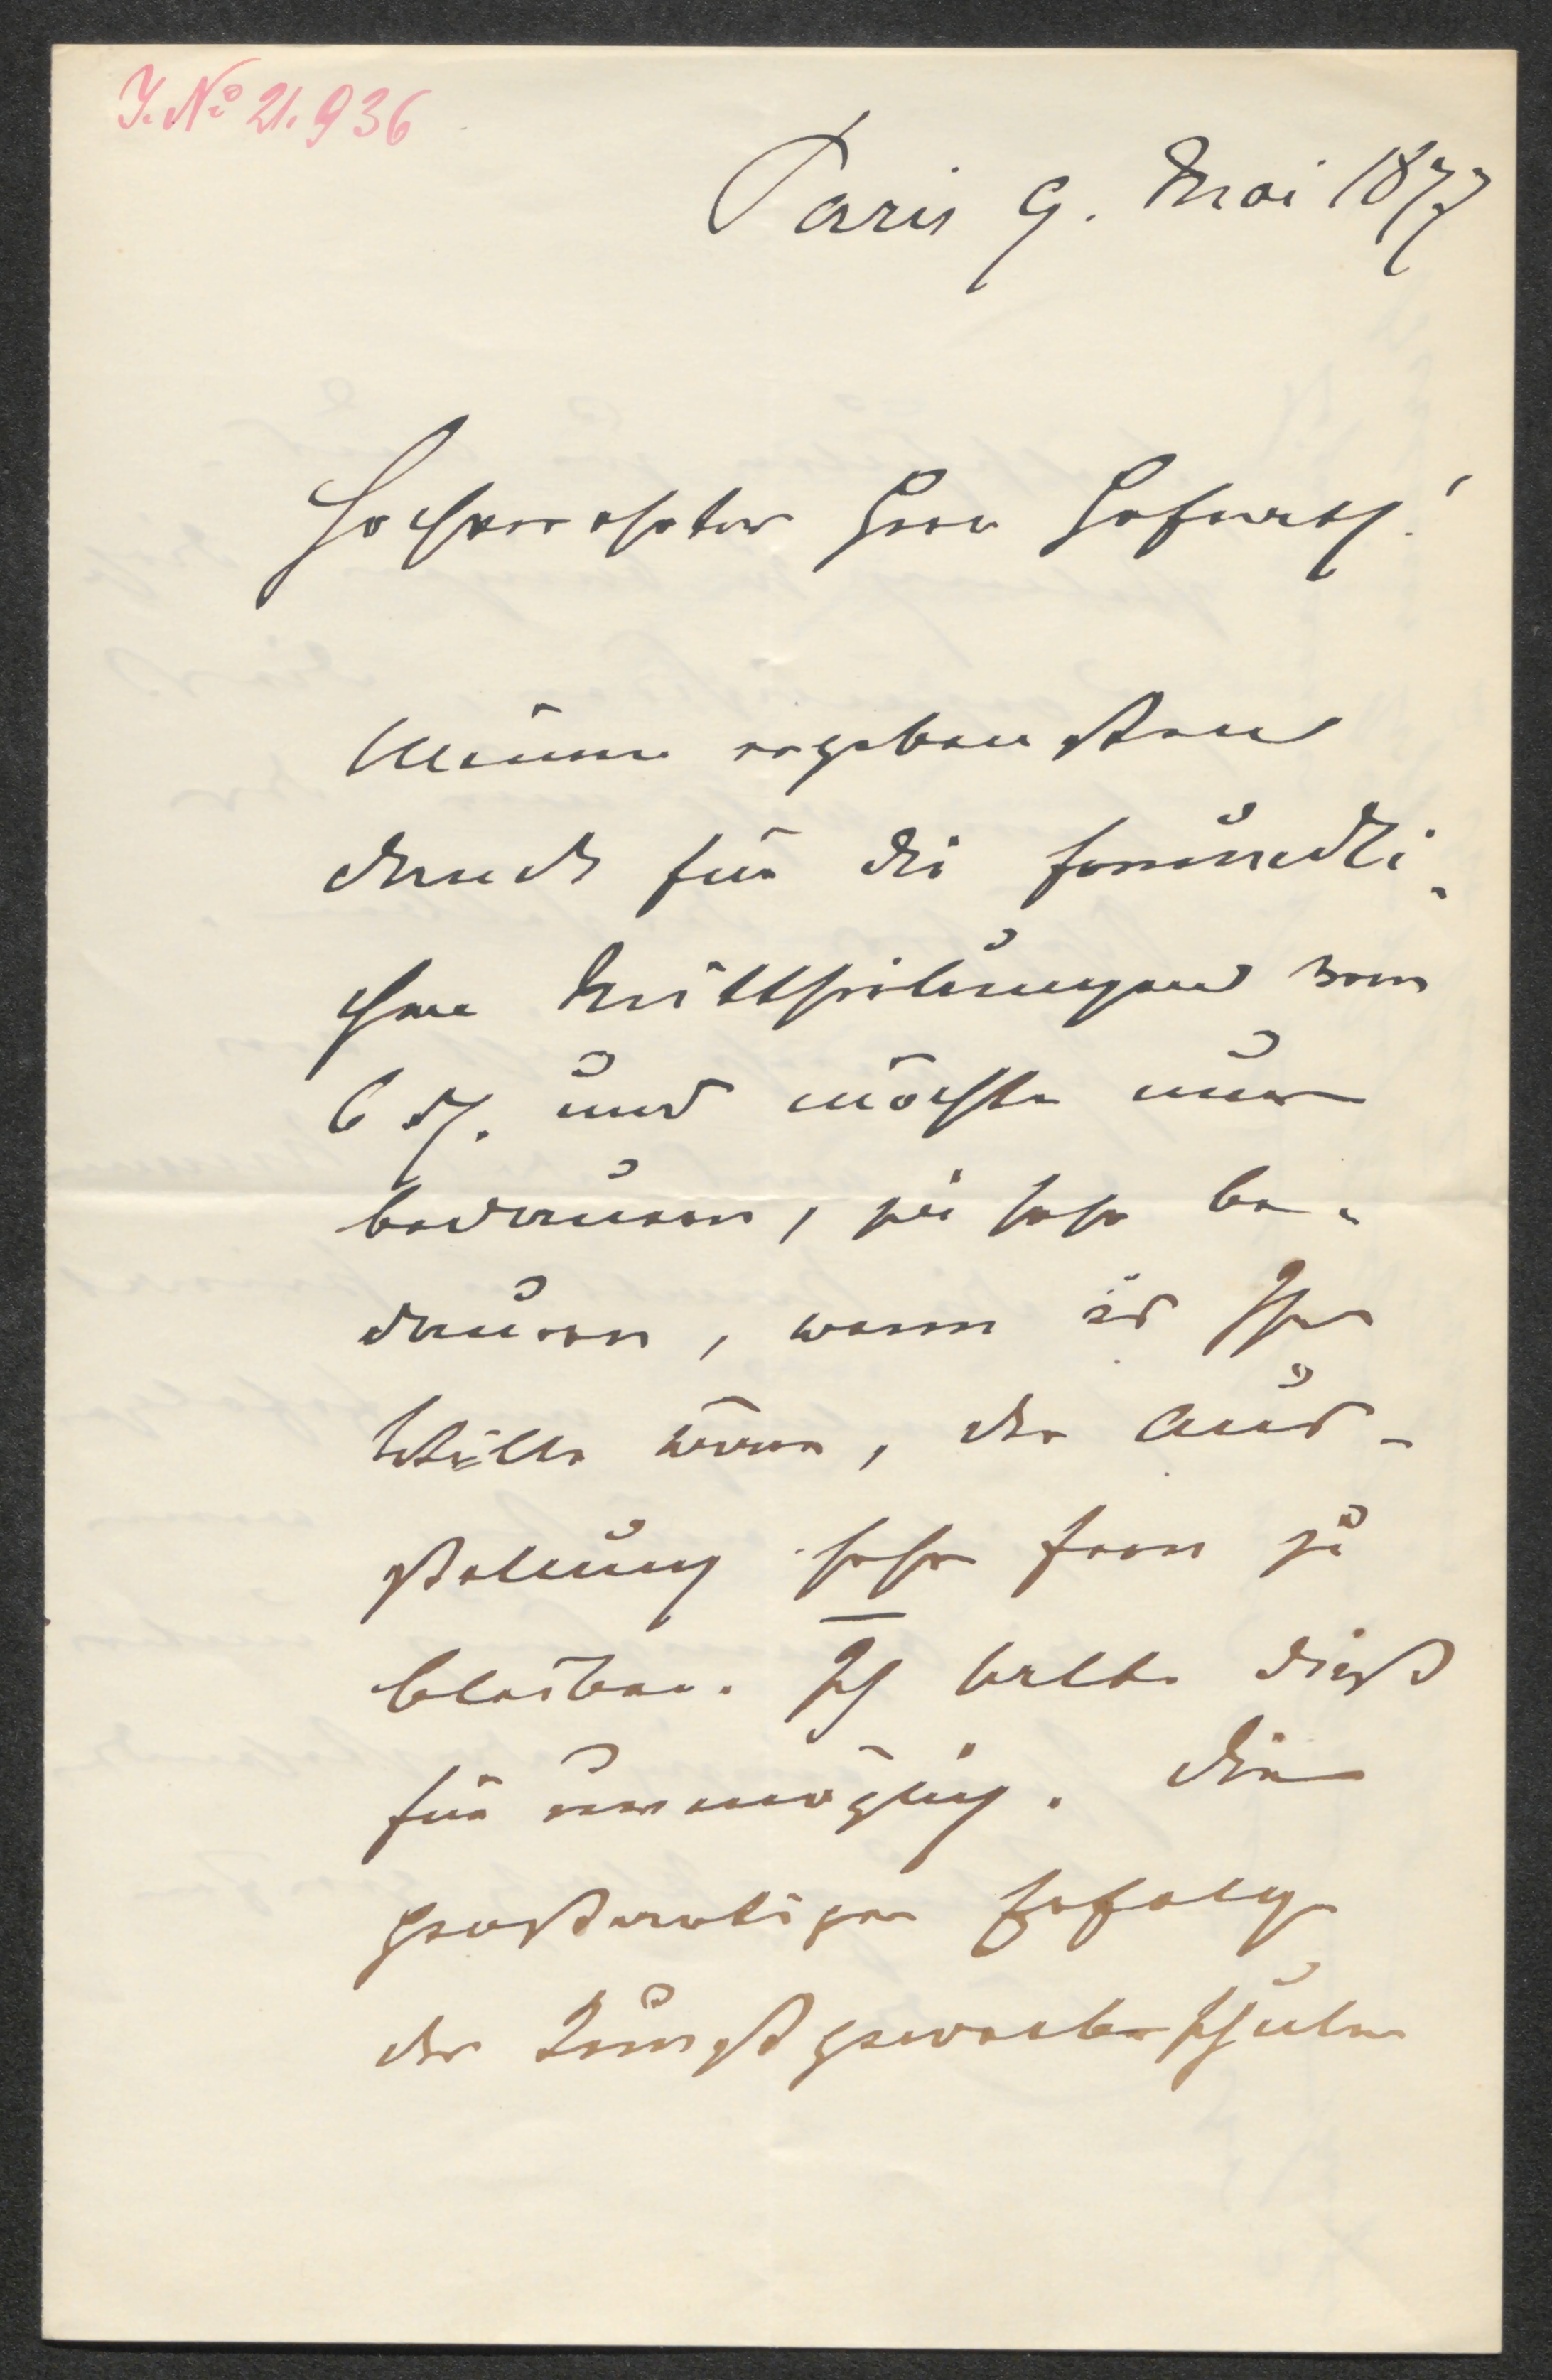 J. No 21.936
Paris 9. Mai 1877
Hochverehrter Herr Hofrath!
Meinen ergebensten
Dank für die freundli-
chen Mittheilungen vom
6 d/. und möchte nur
bedauern, ja sehr be-
dauern, wenn es Ihr
Wille wäre, der Aus-
stellung sehr fern zu
bleiben. Ich halte dieß
für unmöglich. Die
großartigen Erfolge
der Kunstgewerbeschulen